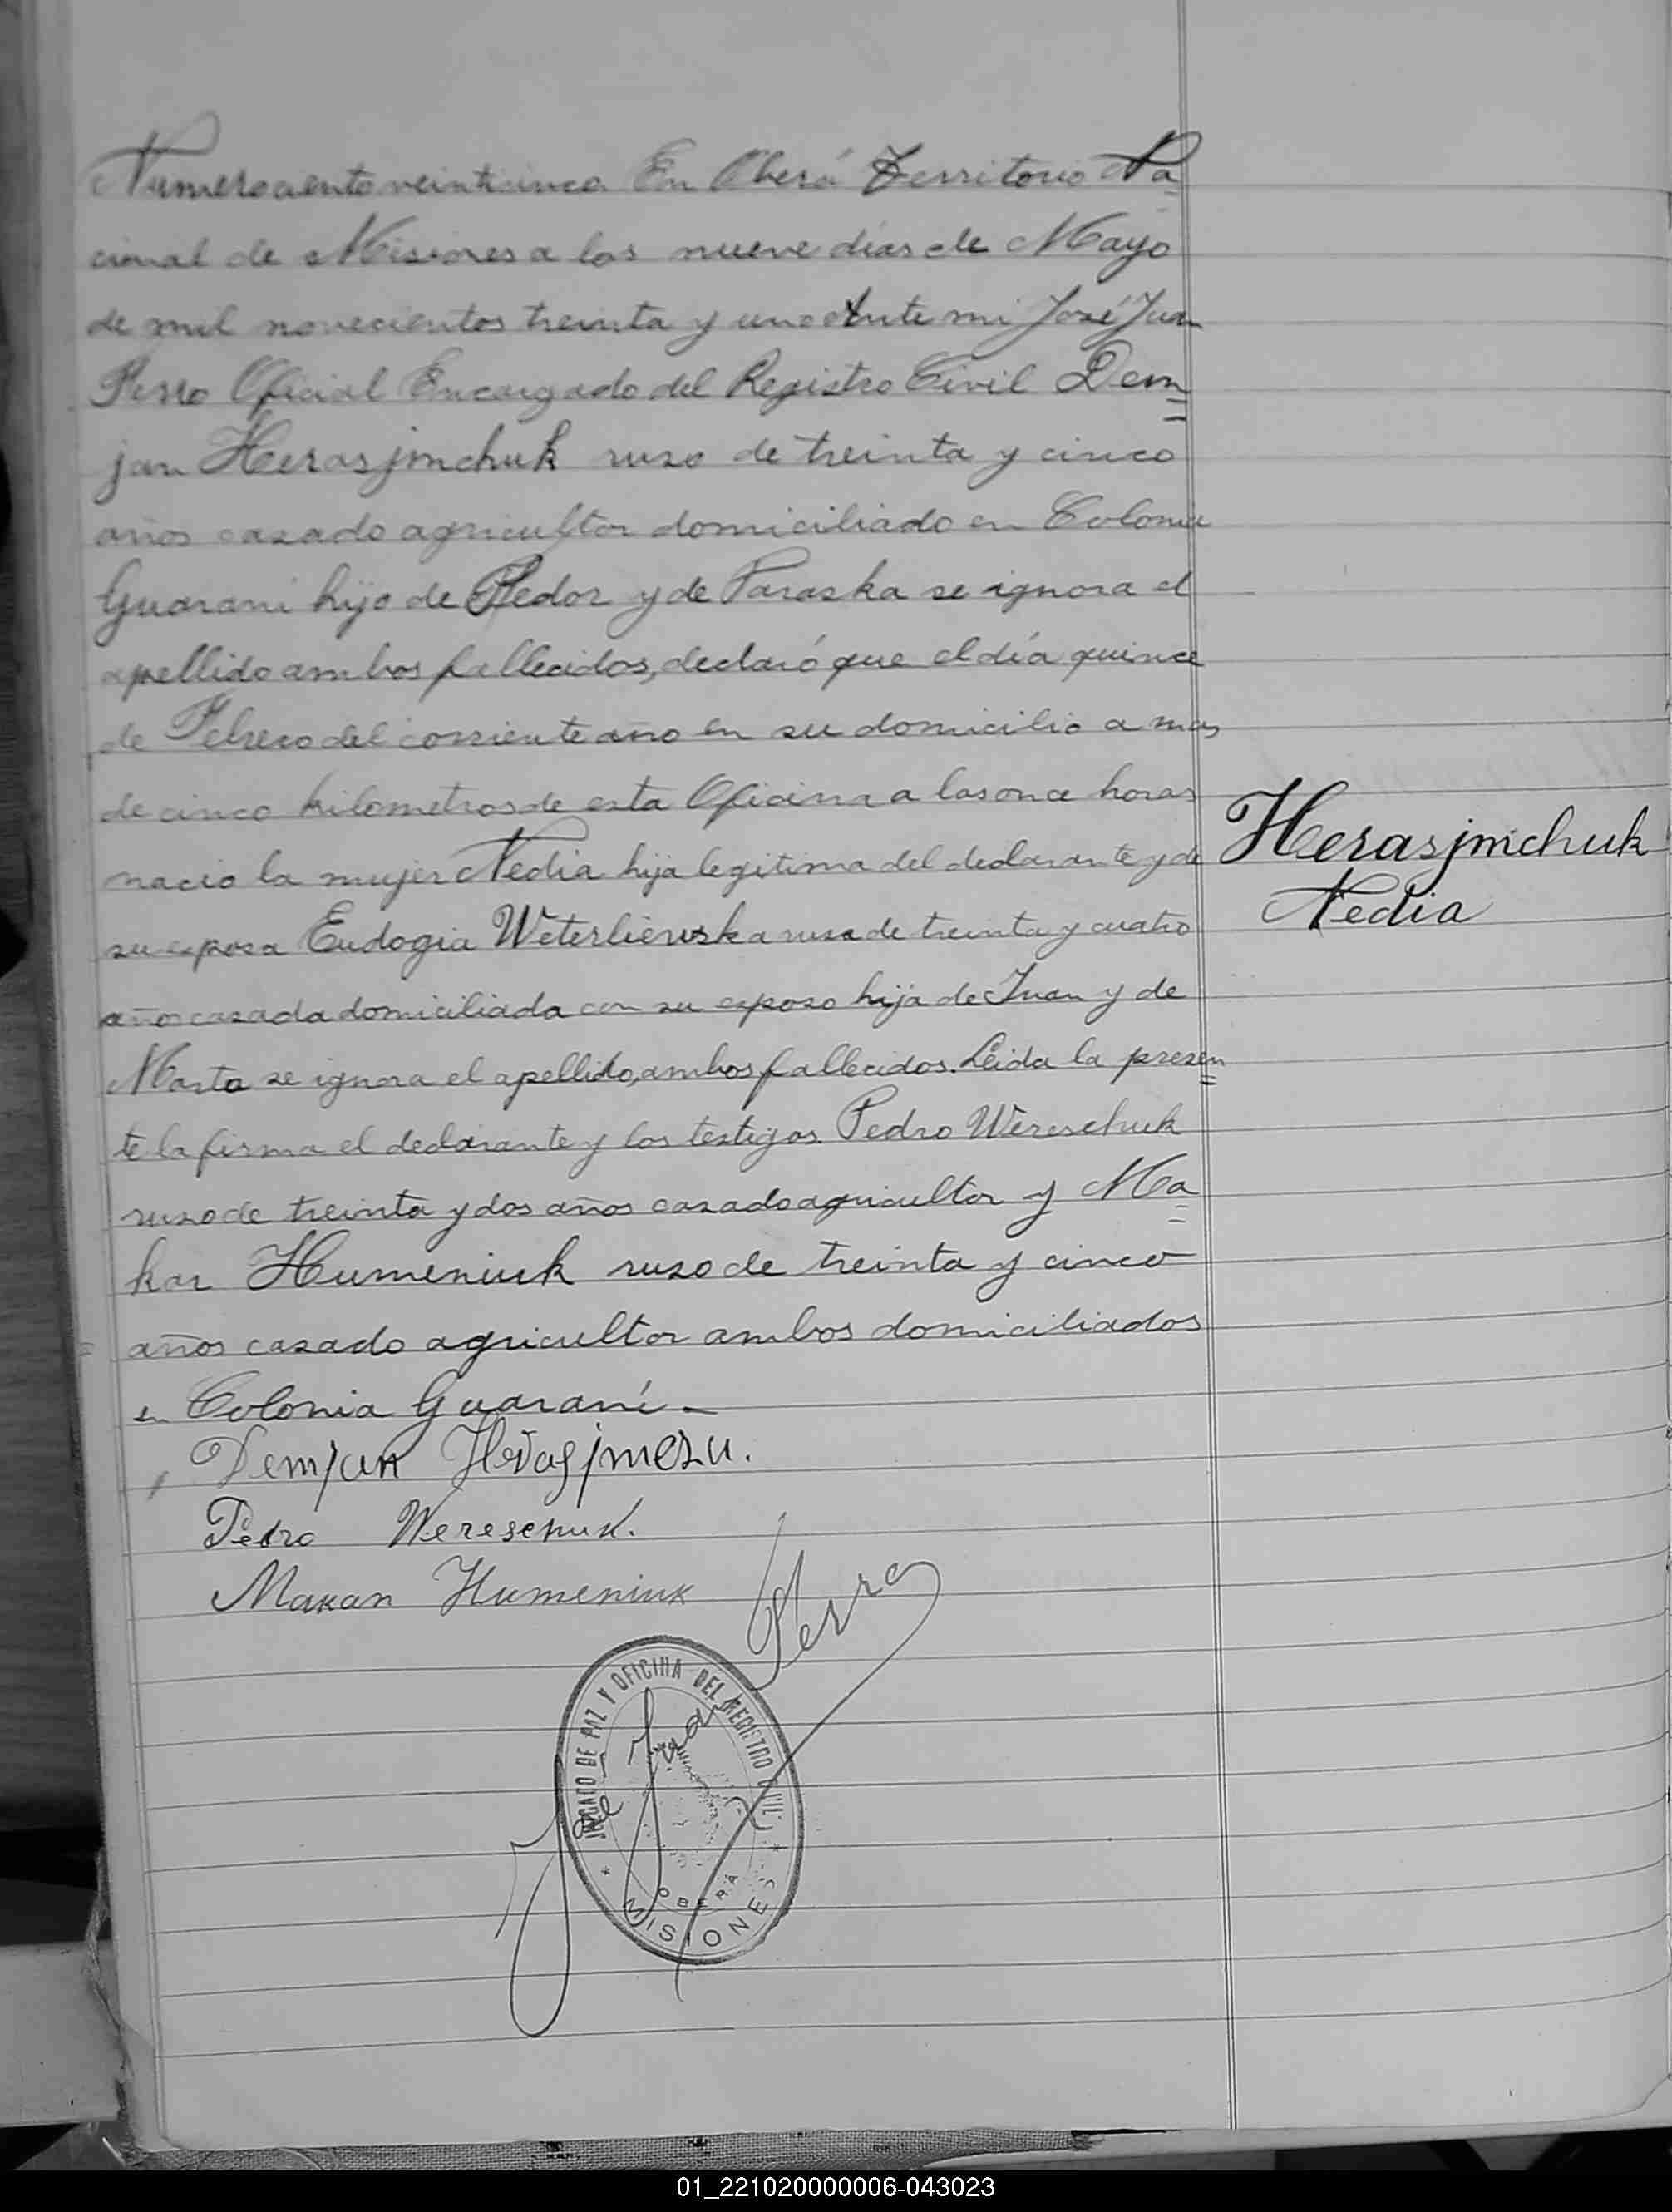 Numero ciento veinticinco En Oberá Territorio Na
cional de Misiones a los nueve dias de Mayo
de mil novecientos treinta y uno Ante mi José Juan
Ferro Oficial Encargado del Registro Civil Dem
jan Herasjmchuk ruso de treinta y cinco
años casado agricultor domiciliado en Colonia
Guarani hijo de Fedor y de Paraska se ignora el
apellido ambos fallecidos, declaró que el día quince
de Febrero del corriente año en su domicilio a mas
de cinco kilometros de esta Oficina a las once horas
nacio la mujer Nedia hija legitima del declarante y de
su esposa Eudogia Weterliewska rusa de treinta y cuatro
años casada domiciliada con su esposo hija de Juan y de
Marta se ignora el apellido, ambos fallecidos. Leida la presen
te la firma el declarante y los testigos Pedro Wereschuk
ruso de treinta y dos años casado agricultor y Ma
kar Humeniuk ruso de treinta y cinco
años casado agricultor ambos domiciliados
en Colonia Guaraní
Herasjmchuk
Nedia
Demjan
Pedro Wereschuk.
Makar Humeniuk
José Juan Ferro
JUZGADO DE PAZ Y OFICINA DEL REGISTRO CIVIL
OBERA
MISIONES
01_221020000006-043023